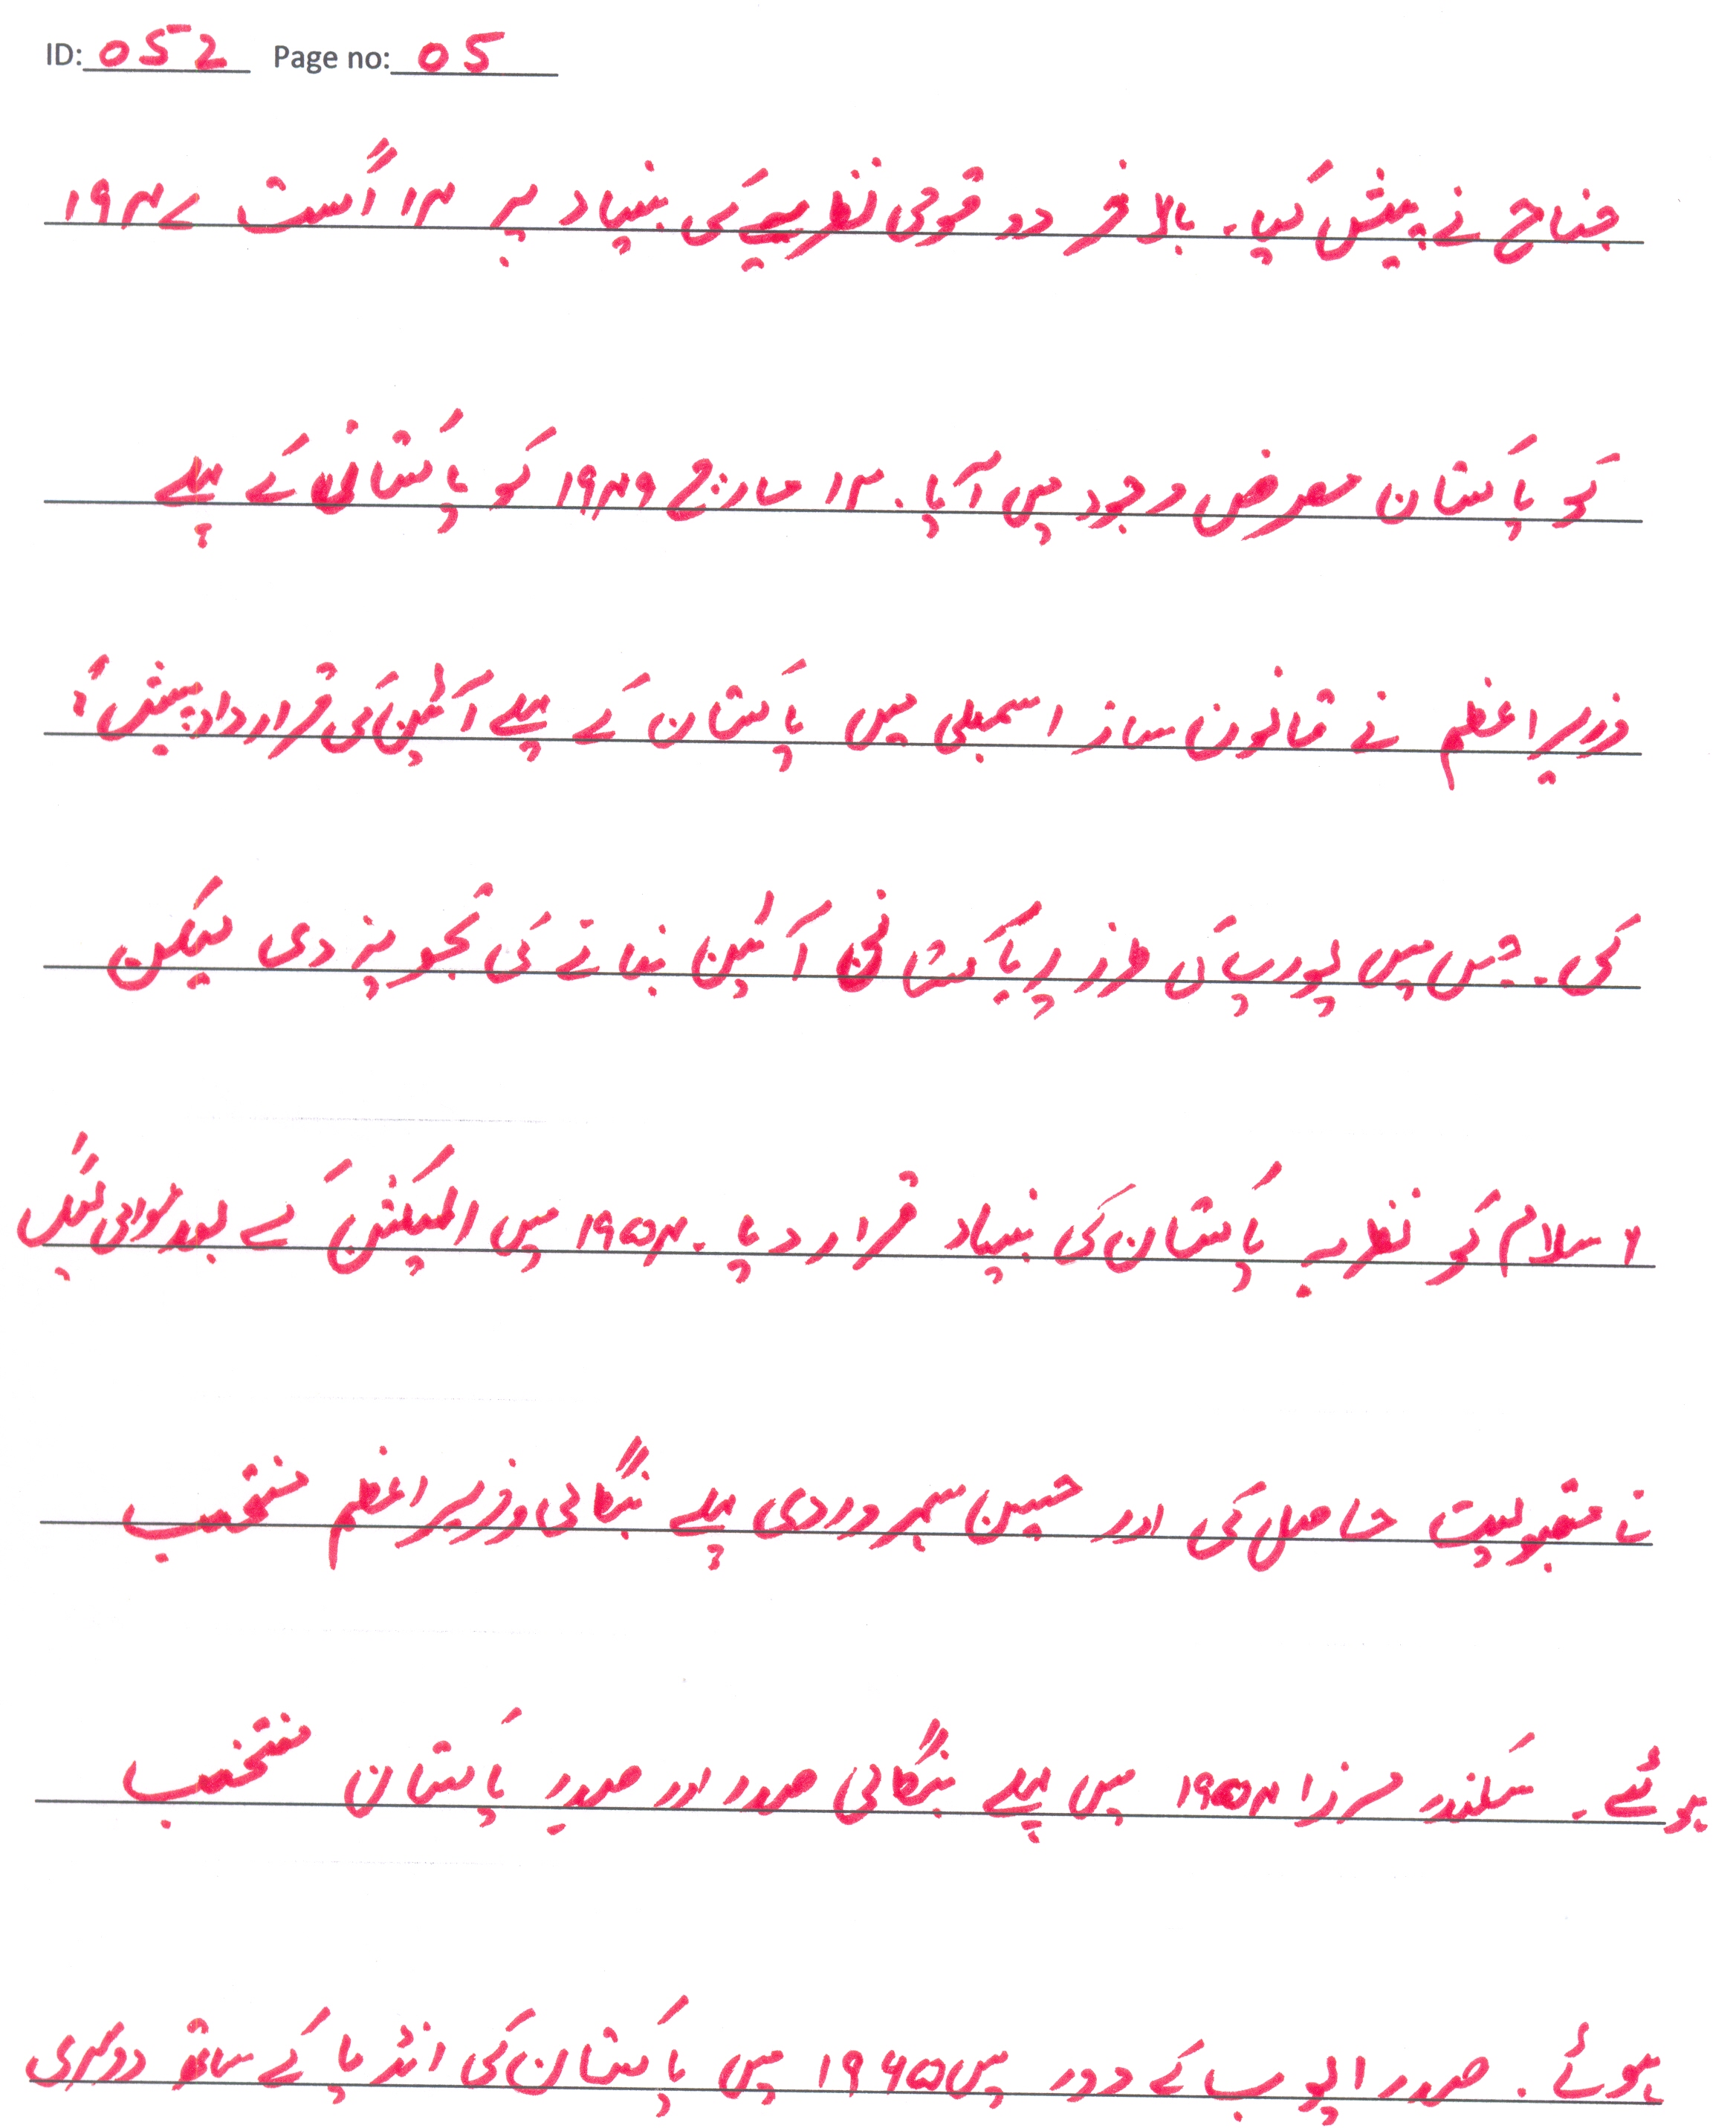 ID: 052 Page no: 05
جناح نے پیش کیا۔ بالاخر دو قومی نظریے کی بنیاد پر ۱۴ اگست ۱۹۴۷
کو پاکستان معرض وجود میں آیا۔ ۱۲ مارچ ۱۹۴۹ کو پاکستانی کے پہلے
وزیراعظم نے قانون ساز اسمبلی میں پاکستان کے پہلے آئین کی قرارداد پیش
کی۔ جس میں یورپ کی طرز پر پاکستانی آئین بنانے کی تجویز دی لیکن
اسلام کو نظریہ پاکستان کی بنیاد قرار دیا۔ ۱۹۵۴ میں الیکشن کے بعد عوامی لیگ
نے مقبولیت حاصل کی اور حسین سہروردی پہلے بنگالی وزیراعظم منتخب
ہوئے۔ سکندر مرزا ۱۹۵۴ میں پہلے بنگالی صدر اور صدر پاکستان منتخب
ہوئے۔ صدر ایوب کے دور میں ۱۹۶۵ میں پاکستان کی انڈیا کے ساتھ دوسری